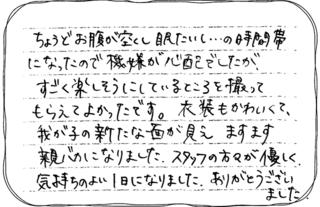 ちょうどお腹が空くし眠たいし…の時間帯
になったので機嫌が心配でしたが、
すごく楽しそうにしているところを撮って
もらえてよかったです。衣装もかわいくて、
我が子の新たな面が見え ますます
親バカになりました。スタッフの方々が優しく、
気持ちのよい1日になりました。ありがとうござい
ました。